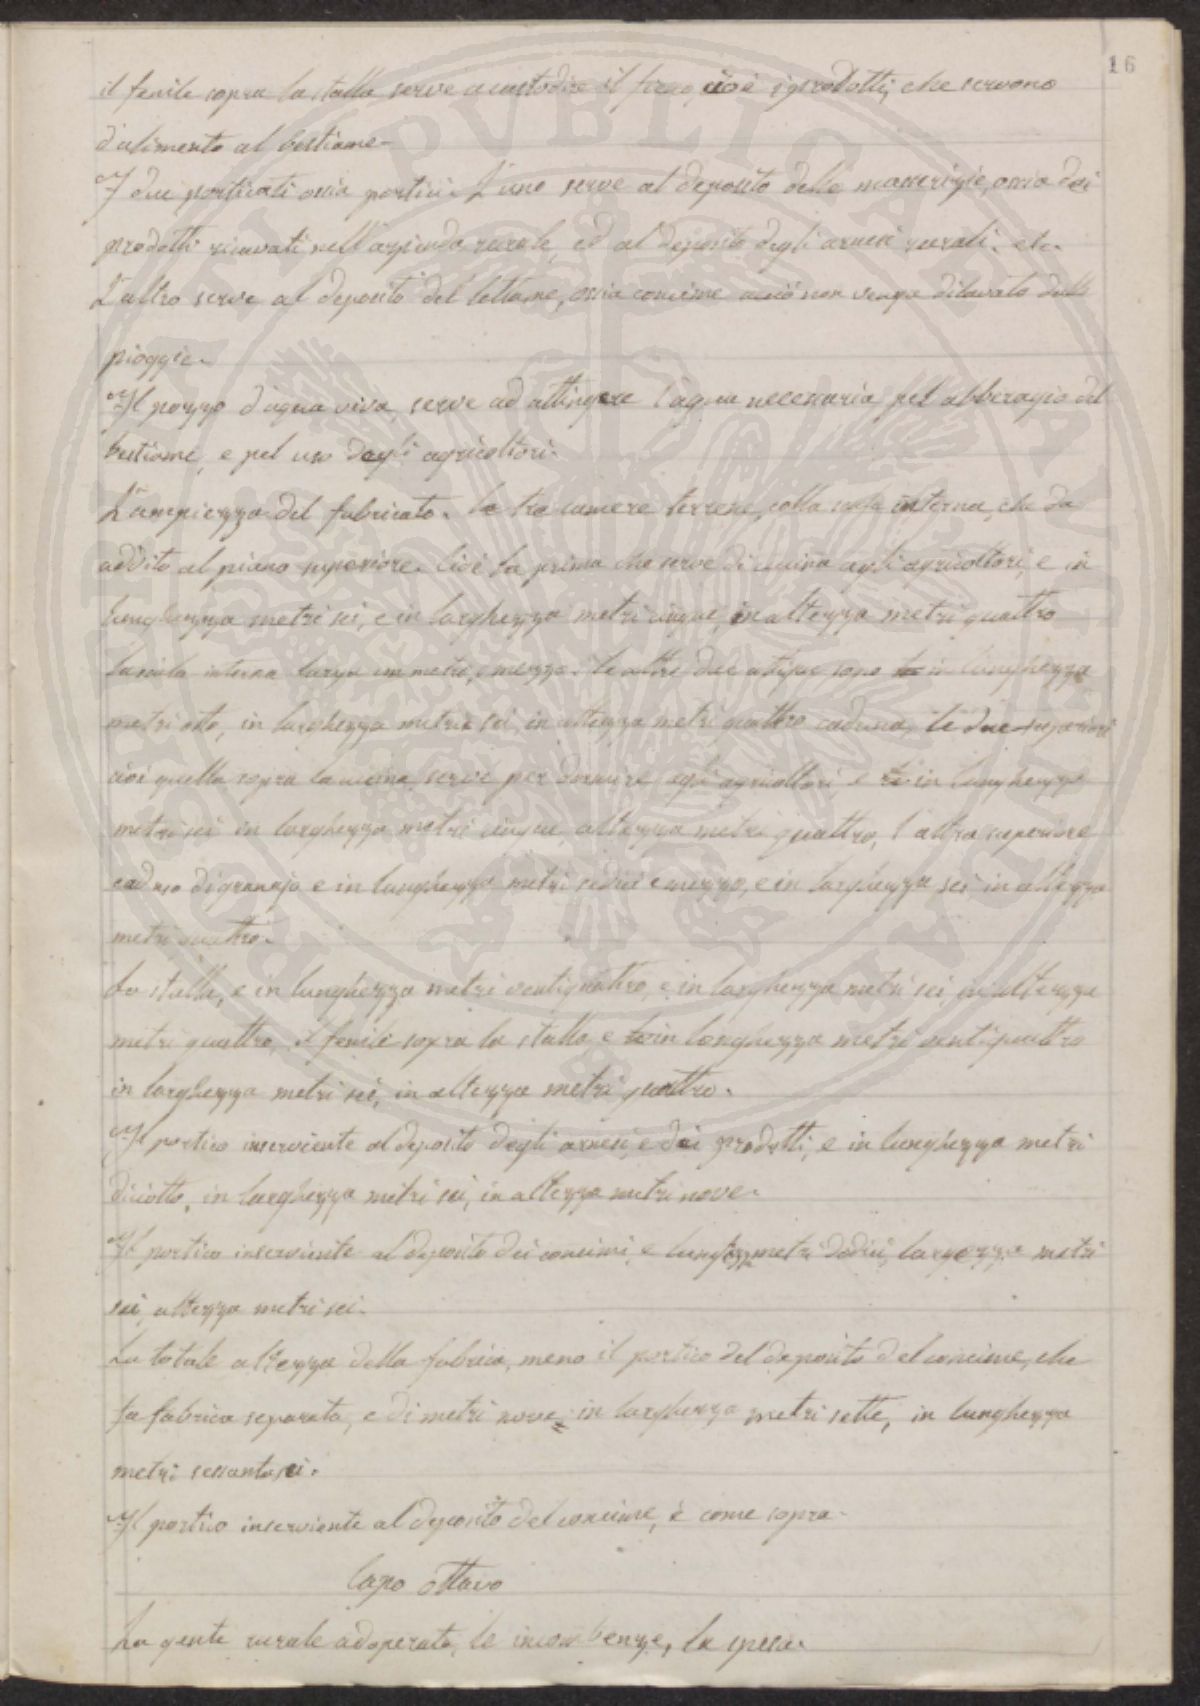 16
il fenile sopra la stalla serve a custodire il fieno, cioè i prodotti, che servono
d'alimento al bestiame.
I due porticati ossia portici. L'uno serve al deposito delle masserizie, ossia dei
prodotti ricavati nell'azienda rurale, ed al deposito degli arnesi rurali. etc.
L'altro serve al deposito del lettame, ossia concime acciò non venga dilavato dalle
pioggie.
Il pozzo d'aqua viva, serve ad attingere l'aqua necessaria pel abberagio del
bestiame, e pel uso degli agricoltori.
L'ampiezza del fabricato. le tre camere terrene, colla scala interna, che da
addito al piano superiore. Cioè la prima che serve di cucina agli agricoltori, e in
lunghezza metri sei, e in larghezza metri cinque, in altezza metri quattro
la scala interna larga un metro, e mezzo. le altre due attigue sono in lunghezza
metri otto, in larghezza metri sei, in altezza metri quattro caduna, le due superiori
cioè quella sopra la cucina, serve per dormire agli agricoltori e in lunghezza
metri sei in larghezza metri cinque altezza metri quattro, l'altra superiore
ad uso di granajo e in lunghezza metri sedici e mezzo, e in larghezza sei in altezza
metri quattro.
La stalla, e in lunghezza metri ventiquattro, e in larghezza metri sei, in altezza
metri quattro, il fenile sopra la stalla e in longhezza metri ventiquattro
in larghezza metri sei, in altezza metri quattro.
Il portico inserviente al deposito degli arnesi, e dei prodotti, e in lunghezza metri
diciotto, in larghezza metri sei, in altezza metri nove.
Il portico inserviente al deposito dei concimi, e metri dodici, largezza metri
sei, altezza metri sei.
La totale altezza della fabrica, meno il portico del deposito del concime, che
fa fabrica separata, e di metri nove, in larghezza metri sette, in lunghezza
metri sessantasei.
Il portico inserviente al deposito del concime, è come sopra.
Capo ottavo
La gente rurale adoperata, le incombenze, la spesa.